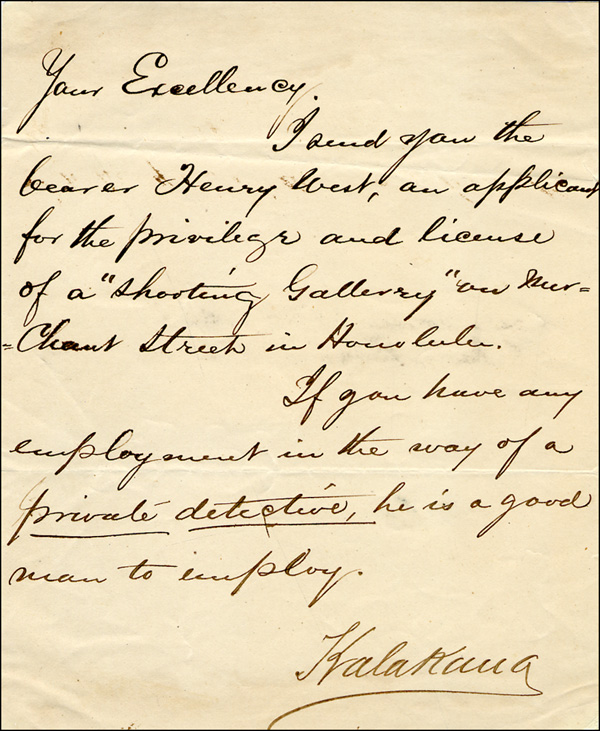 Your Excellency,
I send you the
bearer Henry West, an applicant
for the privilege and license
of a "Shooting Gallerry" on Mer=
=Chant Street in Honolulu.
If you have any
employment in the way of a
private detective, he is a good
man to employ.
Kalakaua